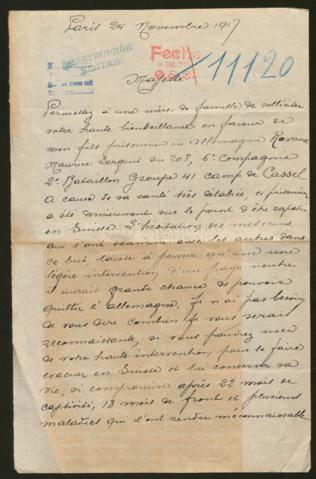 Paris 24 Novembre 1917
Fecho
11120
Majesté
Permettez à une mère de famille de solliciter
votre haute bienveillance en faveur de
mon fils prisonnier en Allemagne
Maurice Sergent du 208, 6e Compagnie
2e Bataillon Groupe 41 camp de Cassel
A cause de sa santé très délabrée, ce prisonnier
a été dernièrement sur le point d'être rapatrié
en Suisse. L'hésitation des médecins
qui l'ont examiné avec les autres dans
ce but, laisse à penser qu'avec une
légère intervention d'un pays neutre
il aurait grande chance de pouvoir
quitter l'Allemagne. Je n'ai pas besoin
de vous dire combien je vous serais
reconnaissante, si vous pouviez user
de votre haute intervention pour le faire
évacuer en Suisse et lui conserver sa
vie, si compromise après 22 mois de
captivité, 18 mois de front et plusieurs
maladies qui l'ont rendu méconnaissable